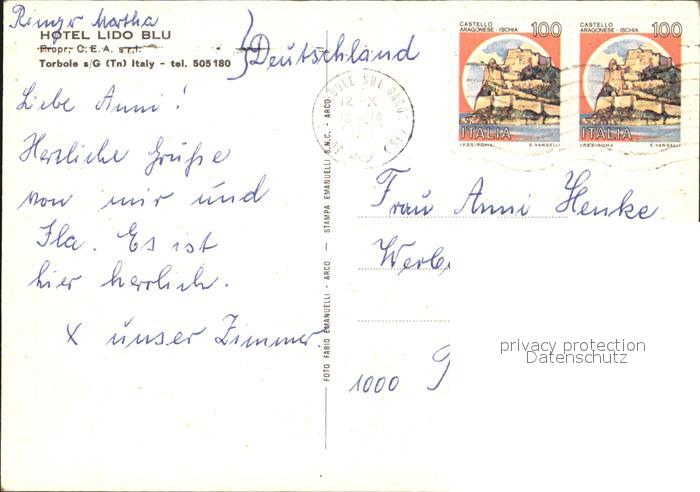 Ringer Martha
HOTEL LIDO BLU
Propr.: C.E.A. s.r.l.
Torbole s/G (Tn) Italy - tel. 505180
Deutschland
Liebe Anni!
Herzliche Grüße
von mir und
Ila. Es ist
hier herrlich.
X unser Zimmer.
FOTO FABIO EMANUELLI - ARCO — STAMPA EMANUELLI S.N.C. - ARCO
12 -X
CASTELLO
ARAGONESE - ISCHIA
100
ITALIA
I.P.Z.S.-ROMA E. VANGELLI
CASTELLO
ARAGONESE - ISCHIA
100
ITALIA
I.P.Z.S.-ROMA E. VANGELLI
Frau Anni Henke
1000
privacy protection
Datenschutz